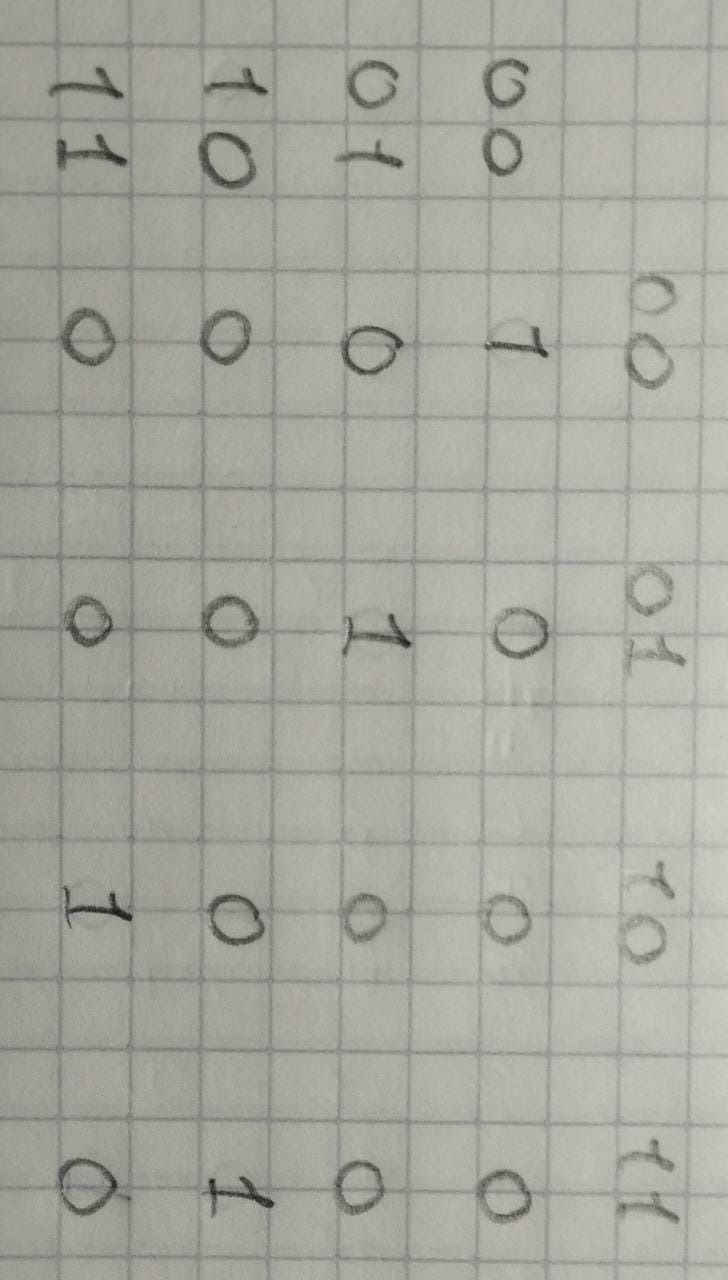 00 01 10 11
00 1 0 0 0
01 0 1 0 0
10 0 0 0 1
11 0 0 1 0